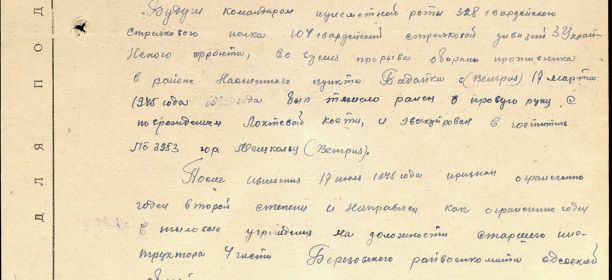 ДЛЯ ПОД
Будучи командиром пулеметной роты 328 гвардейского
стрелкового полка 104 гвардейский стрелковой дивизий 3 Украин
Нского фронта, во время прорыва обороны противника
в районе Населенного пункта (Венгрия) 17 марта
1945 года был тяжело ранен в правую руку, с
повреждением Локтевой кости, и эвакуирован в госпиталь
гор. Мешкольц (Венгрия).
После излечения 17 июля 1945 года признан ограниченно
годен второй степени и направлен как ограниченно годен
в тыловые учреждения на должность старшего инс-
труктора 4 части Березовского райвоенкомата одесской